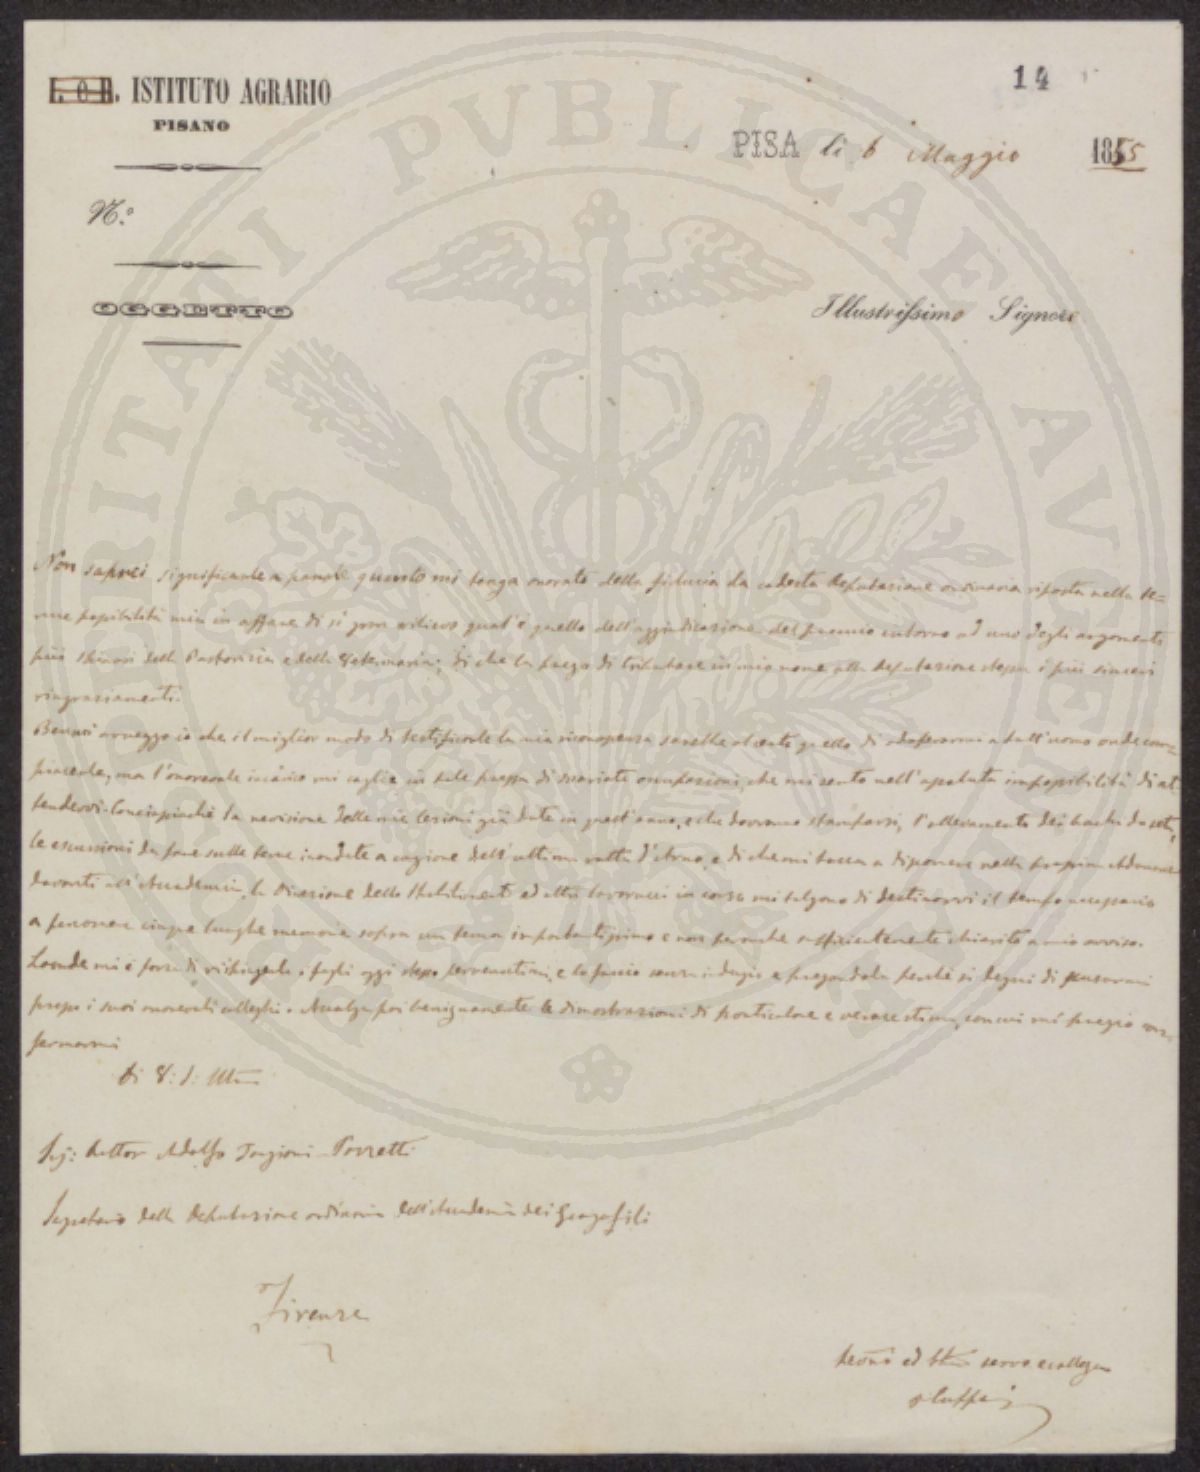 I. e R. ISTITUTO AGRARIO
PISANO
14
PISA li 6 Maggio 1855
N.º
OGGETTO
Illustrissimo Signore
Non saprei significarle a parole quanto mi tenga onorato della fiducia da codesta Deputazione ordinaria riposta nella te=
nue possibilità mia in affare di sì gran rilievo qual'è quello dell'aggiudicazione del premio intorno ad uno degli argomenti
più della Pastorizia e della Veterinaria; di che la prego di tributare in mio nome alla Deputazione stessa i più sinceri
ringraziamenti.
Bensì io che il miglior modo di testificarle la mia riconoscenza sarebbe stato quello di adoperarmi a tutt'uomo onde com=
piacerle, ma l'onorevole incarico mi coglie in tale pressa di svariate occupazioni, che mi sento nell'assoluta impossibilità di at=
tendervi. Conciossiachè la revisione delle mie lezioni già date in quest'anno, e che dovranno stamparsi, l'allevamento dei bachi da seta,
le escursioni da fare sulle terre inondate a cagione dell'ultima rotta d'Arno, e di che mi tocca a disporre nella propria Adunanza
davanti all'Accademia, la Direzione dello Stabilimento ed altri lavorucci in corso mi tolgono di destinarvi il tempo necessario
a percorrere cinque lunghe memorie sopra un tema importantissimo e non peranche sufficientemente chiarito a mio avviso.
Laonde mi è forza di rispingerle i fogli oggi stesso pervenutimi, e lo faccio senza indugio e pregandola perchè si degni di scusarmi
presso i suoi onorevoli colleghi. Accolga poi benignamente le dimostrazioni di particolare e verace stima, con cui mi pregio raf=
fermarmi
Di V: S: Illma
Sig: Dottor Adolfo Targioni-Tozzetti
Segretario della Deputazione ordinaria dell'Accademia dei Georgofili
Firenze
Devmo ed servo e collega
Cuppari
PVBLICAE